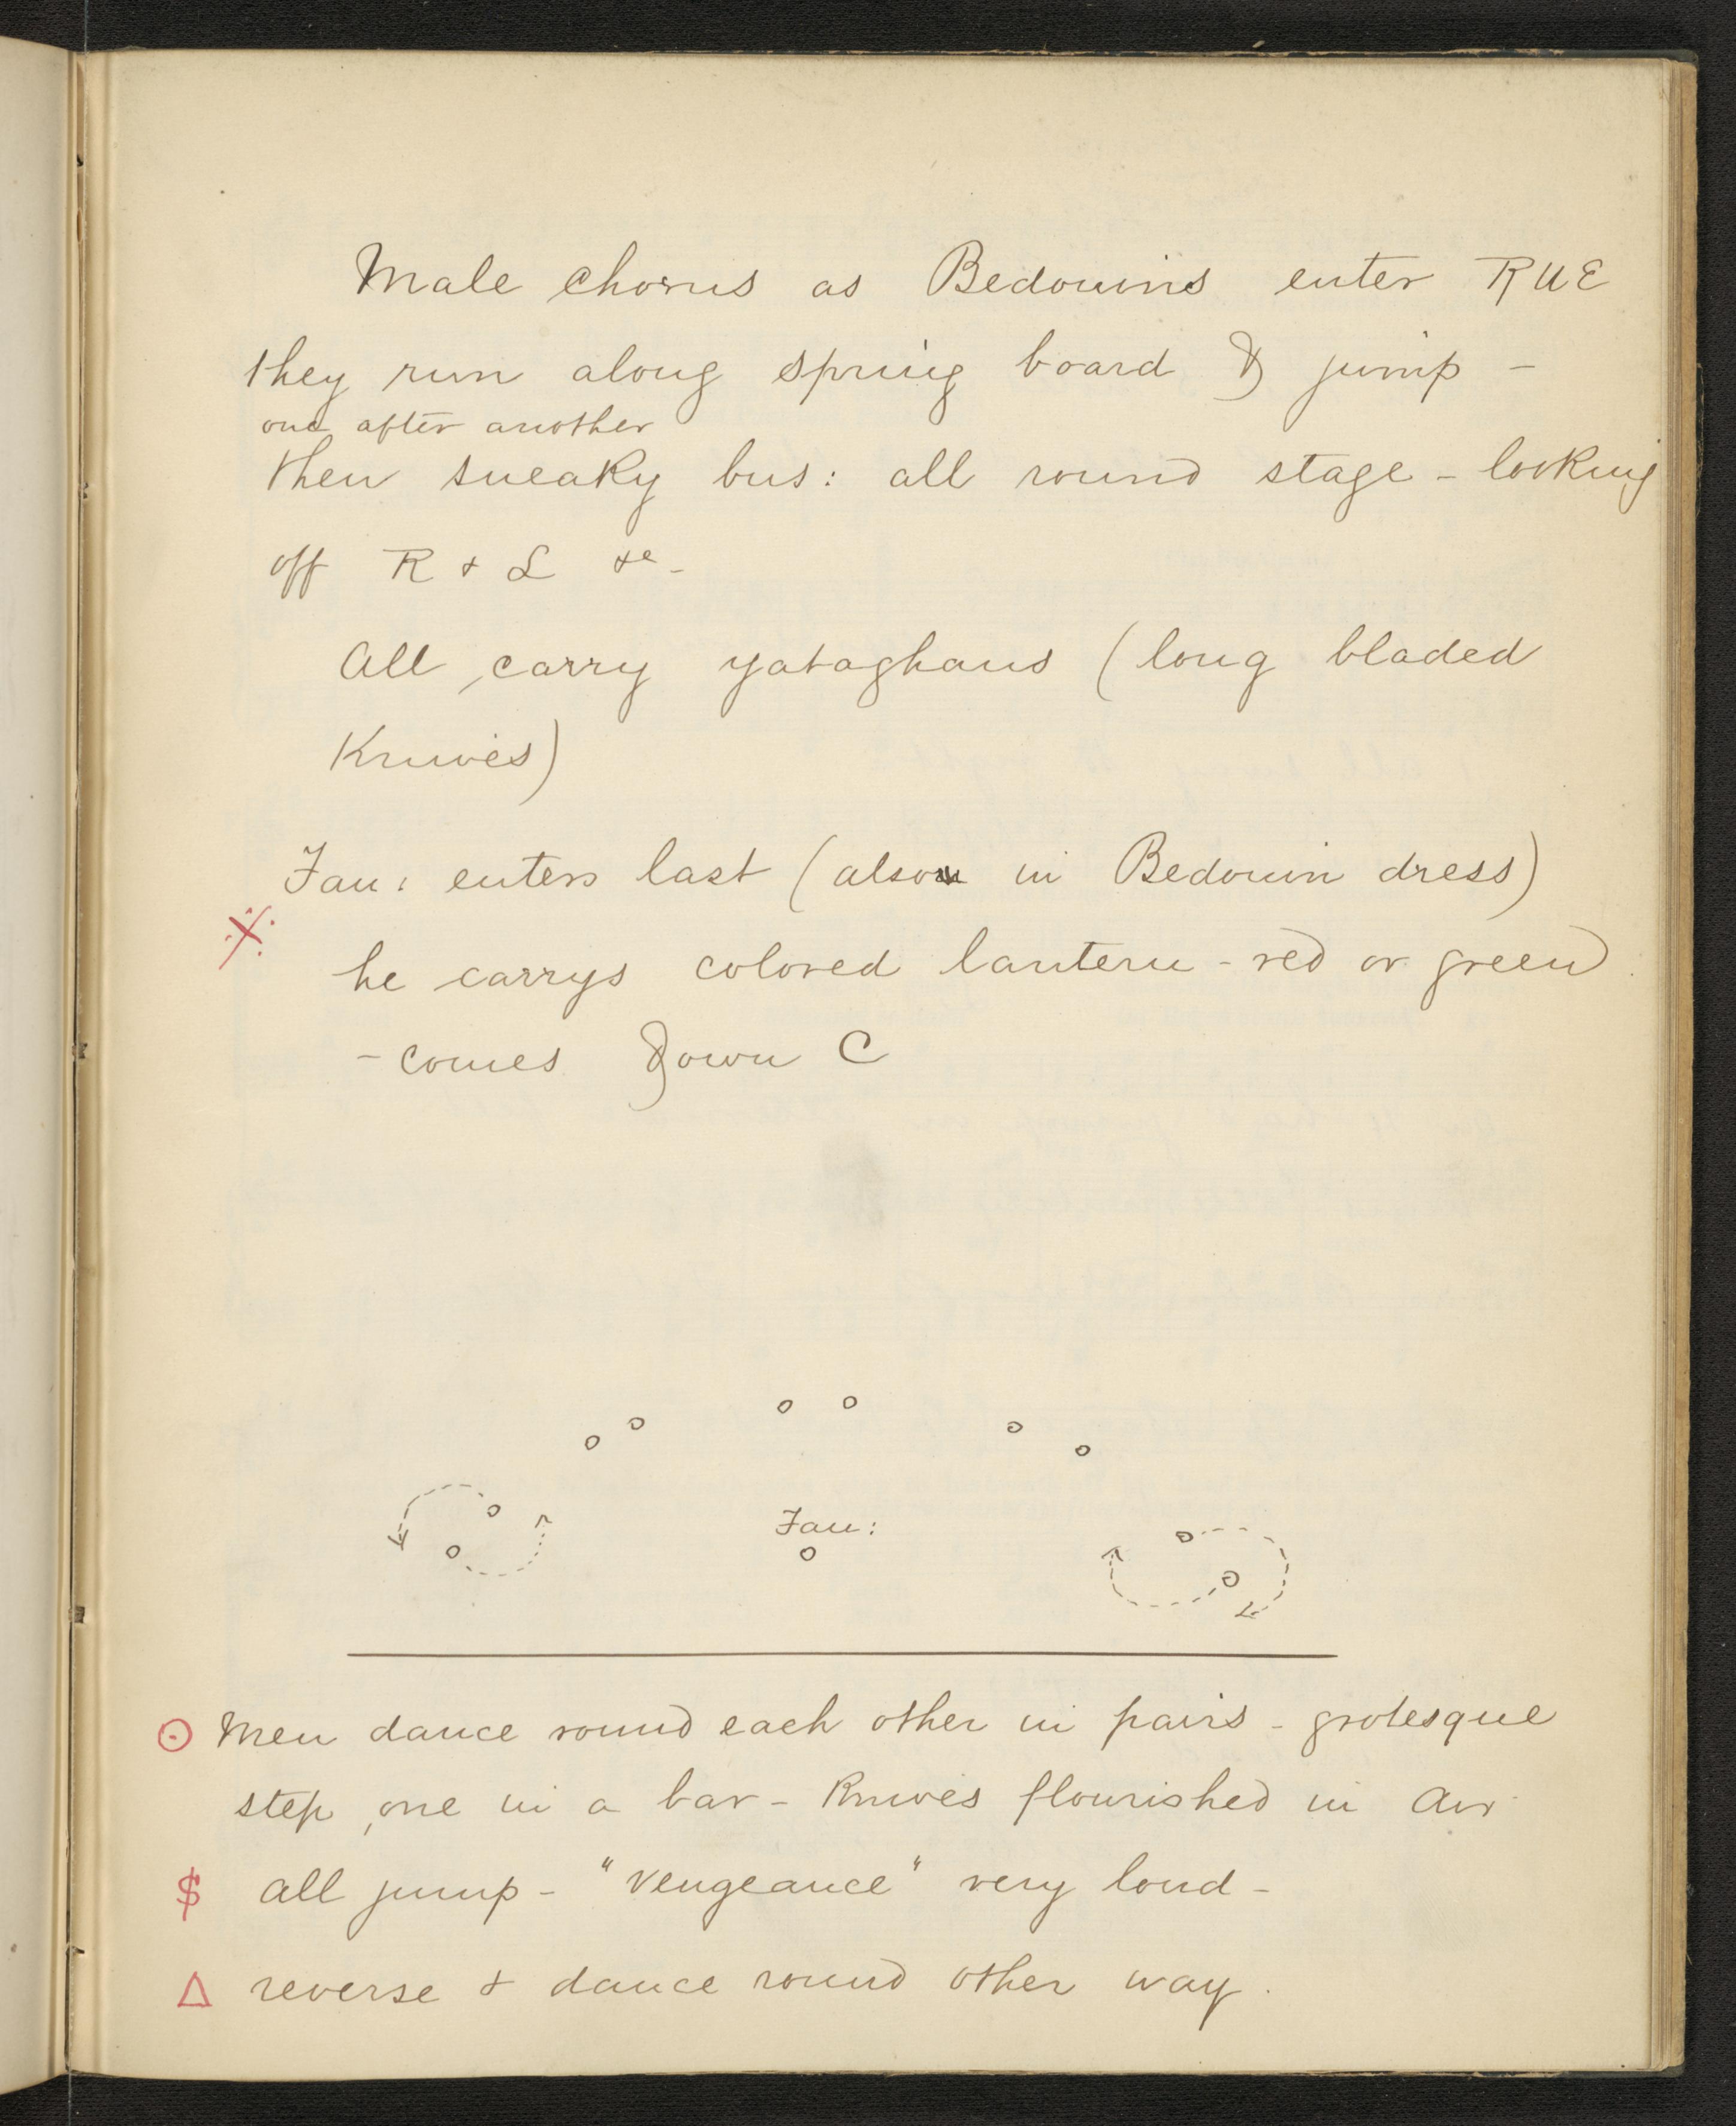 Male chorus as Bedouins enter R U E
they run along spring board & jump -
one after another
then sneaky bus: all round stage - looking
off R + L &c -
All carry yataghans (long bladed
Knives)
Fau: enters last (also in Bedouin dress)
he carrys colored lantern - red or green
- comes down C
Fau:
Men dance round each other in pairs - grotesque
step, one in a bar - Knives flourished in air
$ all jump - "Vengeance" very loud -
Δ reverse + dance round other way.